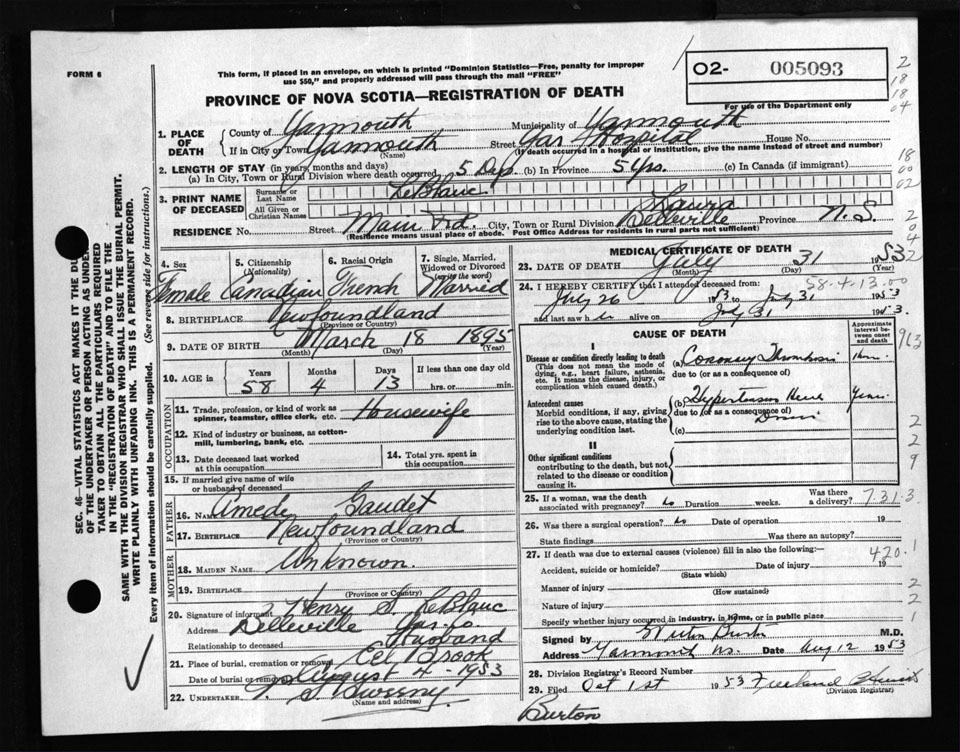 FORM 6
This form, if placed in an envelope, on which is printed "Dominion Statistics—Free, penalty for improper
use $50," and properly addressed will pass through the mail "FREE"
PROVINCE OF NOVA SCOTIA—REGISTRATION OF DEATH
02- 005093
For use of the Department only
2
18
18
04
1. PLACE OF DEATH
County of Yarmouth Municipality of Yarmouth
If in City or Town Yarmouth Street Yar Hospital House No.
(Name) (If death occurred in a hospital or institution, give the name instead of street and number)
2. LENGTH OF STAY (in years, months and days)
(a) In City, Town or Rural Division where death occurred 5 Dys. (b) In Province 5 yrs. (c) In Canada (if immigrant)
18
00
02
3. PRINT NAME OF DECEASED
Surname or Last Name LeBlanc
All Given or Christian Names Laura
RESIDENCE No. Street Main Rd. City, Town or Rural Division Belleville Province N.S.
(Residence means usual place of abode. Post Office Address for residents in rural parts not sufficient)
2
0
04
2
4. Sex
Female
5. Citizenship
(Nationality)
Canadian
6. Racial Origin
French
7. Single, Married,
Widowed or Divorced
(write the word)
Married
8. BIRTHPLACE Newfoundland
(Province or Country)
9. DATE OF BIRTH March 18 1895
(Month) (Day) (Year)
10. AGE in Years Months Days If less than one day
58 4 13 hrs. or min.
OCCUPATION
11. Trade, profession, or kind of work as
spinner, teamster, office clerk, etc. Housewife
12. Kind of industry or business, as cotton-
mill, lumbering, bank, etc.
13. Date deceased last worked
at this occupation
14. Total yrs. spent in
this occupation
15. If married give name of wife
or husband of deceased
FATHER
16. NAME Amedy Gaudet
17. BIRTHPLACE Newfoundland
(Province or Country)
MOTHER
18. MAIDEN NAME Unknown.
19. BIRTHPLACE
(Province or Country)
20. Signature of informant Henry S. LeBlanc
Address Belleville Yar. Co.
Relationship to deceased Husband
21. Place of burial, cremation or removal Eel Brook
Date of burial or removal August 4 - 1953
22. UNDERTAKER S. Sweeny
(Name and address)
MEDICAL CERTIFICATE OF DEATH
23. DATE OF DEATH July 31 1953
(Month) (Day) (Year)
24. I HEREBY CERTIFY that I attended deceased from 58-4-13-00
July 26 1953 to July 31 1953
and last saw her alive on July 31 1953.
CAUSE OF DEATH
Approximate interval between onset and death
963
I
Disease or condition directly leading to death
(This does not mean the mode of
dying, e.g., heart failure, asthenia,
etc. It means the disease, injury, or
complication which caused death.)
(a) Coronary Thrombosis
due to (or as a consequence of)
Antecedent causes
Morbid conditions, if any, giving
rise to the above cause, stating the
underlying condition last.
(b) Hypertension Heart Years
due to (or as a consequence of)
(c)
II
Other significant conditions
contributing to the death, but not
related to the disease or condition
causing it.
2
2
9
25. If a woman, was the death
associated with pregnancy? No Duration weeks. Was there a delivery?
7.31.3
26. Was there a surgical operation? No Date of operation 19
State findings Was there an autopsy?
27. If death was due to external causes (violence) fill in also the following:—
420.1
Accident, suicide or homicide? Date of injury 19
(State which)
Manner of injury
(How sustained)
Nature of injury
Specify whether injury occurred in industry, in home, or in public place
2
2
1
Signed by Burton M.D.
Address Yarmouth NS. Date Aug 12 1953
28. Division Registrar's Record Number
29. Filed Oct 1st 1953 Freeland
(Division Registrar)
Burton
SEC. 46—VITAL STATISTICS ACT MAKES IT THE DUTY
OF THE UNDERTAKER OR PERSON ACTING AS UNDER-
TAKER TO OBTAIN ALL THE PARTICULARS REQUIRED
IN THE "REGISTRATION OF DEATH" AND TO FILE THE
SAME WITH THE DIVISION REGISTRAR WHO SHALL ISSUE THE BURIAL PERMIT.
WRITE PLAINLY WITH UNFADING INK. THIS IS A PERMANENT RECORD.
Every item of information should be carefully supplied. (See reverse side for instructions.)